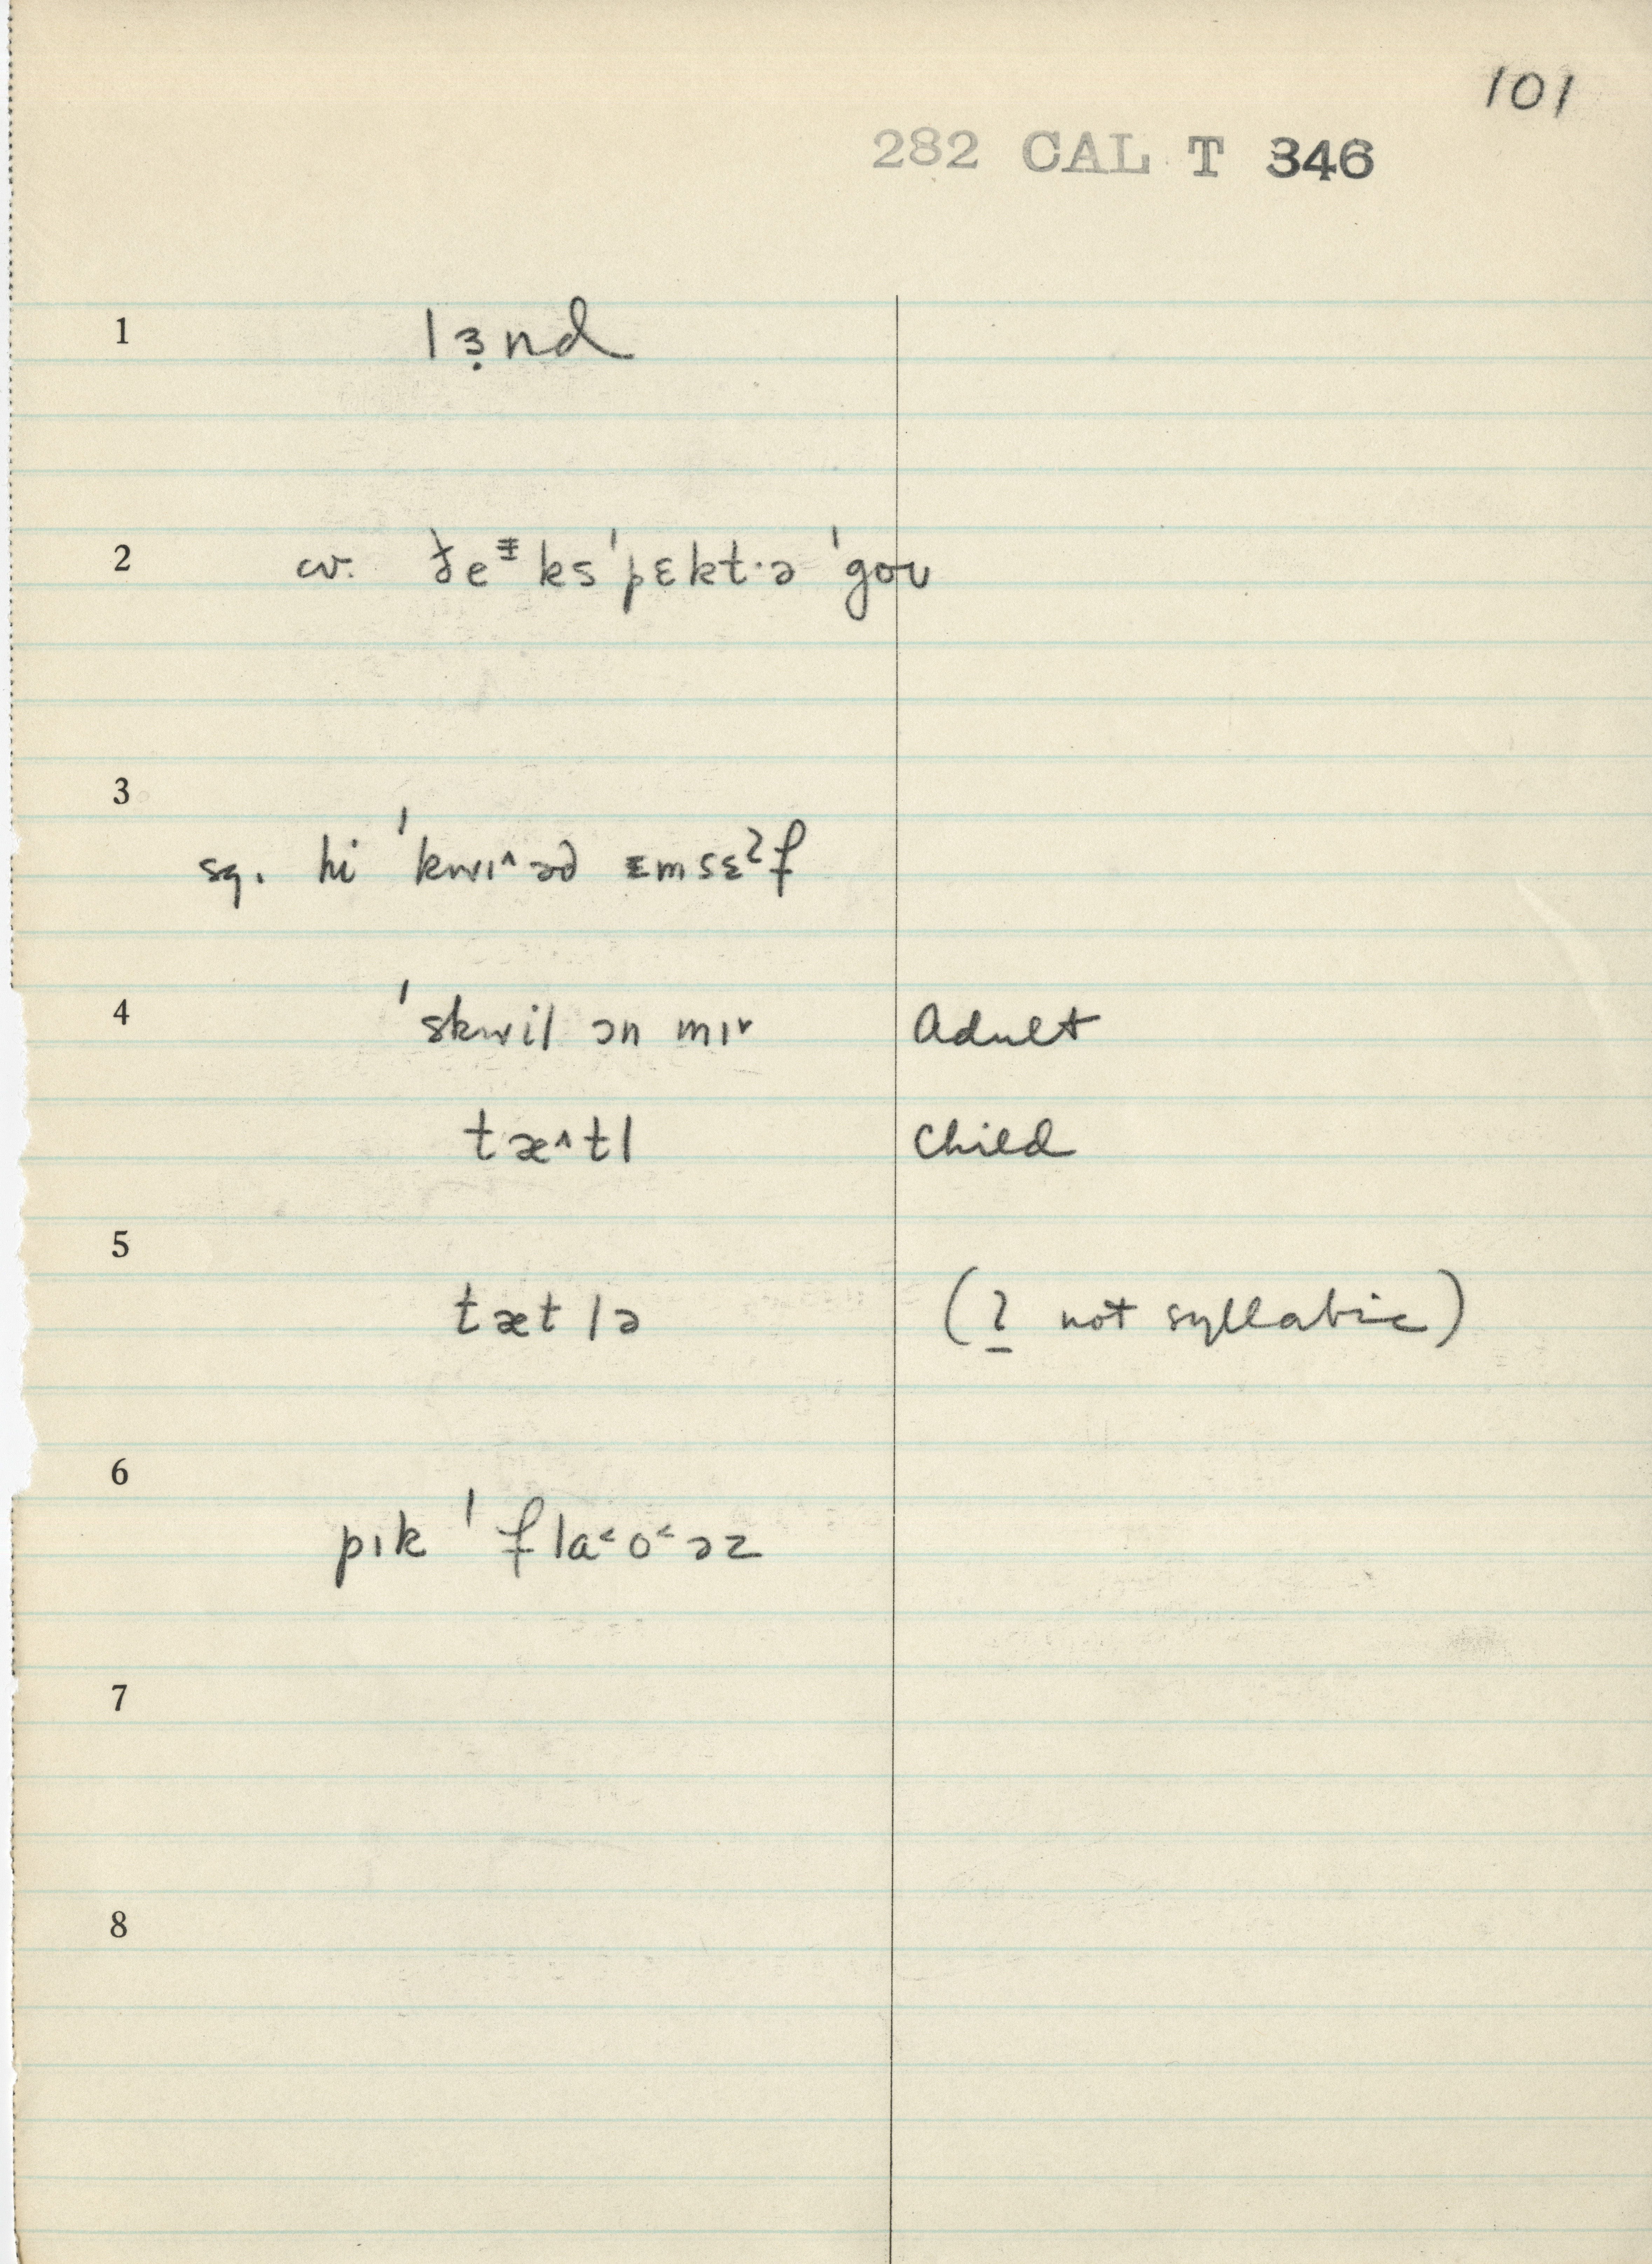 101
282 CAL T 346
1 lɜ̣nd
2 cv. ðeᵻks ˈpɛkt·ə ˈgoʊ
3
sq. hi ˈkwɪ^əd ɛmsɛˀf
4 ˈskwil ən mɪ˅ Adult
tæ^tl Child
5
tætlə (l̲ not syllabic)
6
pɪk ˈflɑ˂o˂əz
7
8